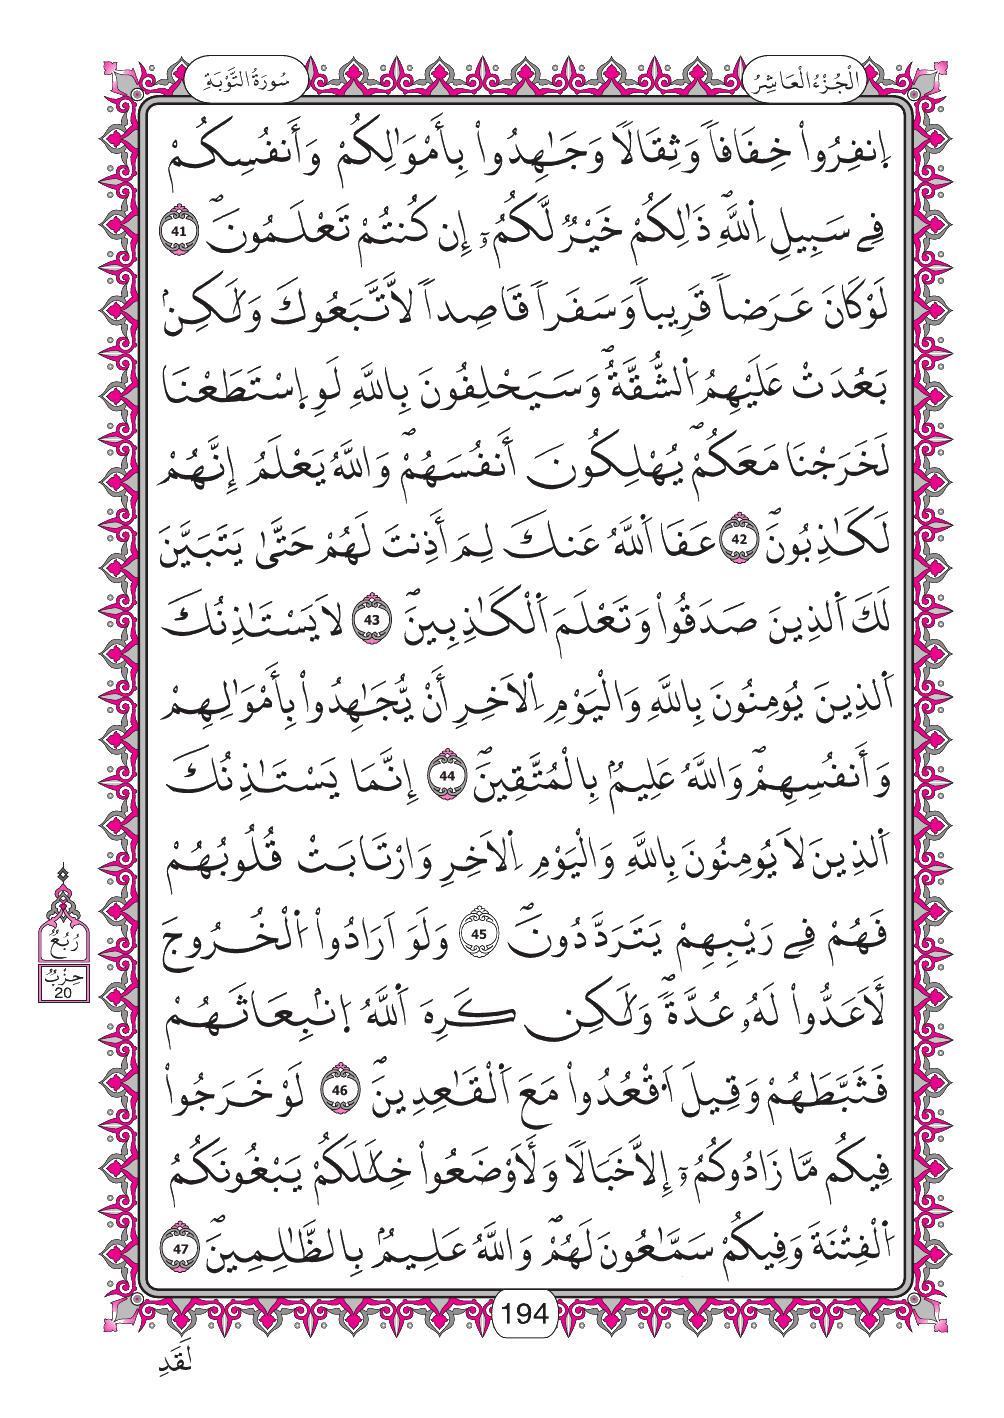 سُورَةُ التَّوْبَةِ
الْجُزْءُ الْعَاشِرُ
اِ۪نفِرُواْ خِفَافاٗ وَثِقَالاٗ وَجَٰهِدُواْ بِأَمْوَٰلِكُمْ وَأَنفُسِكُمْ
فِے سَبِيلِ اِ۬للَّهِۖ ذَٰلِكُمْ خَيْرٞ لَّكُمُۥٓ إِن كُنتُمْ تَعْلَمُونَۖ 41
لَوْ كَانَ عَرَضاٗ قَرِيباٗ وَسَفَراٗ قَاصِداٗ لاَّتَّبَعُوكَ وَلَٰكِنۢ
بَعُدَتْ عَلَيْهِمُ اُ۬لشُّقَّةُۖ وَسَيَحْلِفُونَ بِاللَّهِ لَوِ اِ۪سْتَطَعْنَا
لَخَرَجْنَا مَعَكُمْۖ يُهْلِكُونَ أَنفُسَهُمْۖ وَاللَّهُ يَعْلَمُ إِنَّهُمْ
لَكَٰذِبُونَۖ 42 عَفَا اَ۬للَّهُ عَنكَ لِمَ أَذِنتَ لَهُمْ حَتَّىٰ يَتَبَيَّنَ
لَكَ اَ۬لذِينَ صَدَقُواْ وَتَعْلَمَ اَ۬لْكَٰذِبِينَۖ 43 لاَ يَسْتَٰذِنُكَ
اَ۬لذِينَ يُومِنُونَ بِاللَّهِ وَالْيَوْمِ اِ۬لاَخِرِ أَنْ يُّجَٰهِدُواْ بِأَمْوَٰلِهِمْ
وَأَنفُسِهِمْۖ وَاللَّهُ عَلِيمُۢ بِالْمُتَّقِينَۖ 44 إِنَّمَا يَسْتَٰذِنُكَ
اَ۬لذِينَ لاَ يُومِنُونَ بِاللَّهِ وَالْيَوْمِ اِ۬لاَخِرِ وَارْتَابَتْ قُلُوبُهُمْ
فَهُمْ فِے رَيْبِهِمْ يَتَرَدَّدُونَۖ 45 وَلَوَ اَرَادُواْ اُ۬لْخُرُوجَ
لَأَعَدُّواْ لَهُۥ عُدَّةٗۖ وَلَٰكِن كَرِهَ اَ۬للَّهُ اُ۪نۢبِعَاثَهُمْ
فَثَبَّطَهُمْ وَقِيلَ اَ۟قْعُدُواْ مَعَ اَ۬لْقَٰعِدِينَۖ 46 لَوْ خَرَجُواْ
فِيكُم مَّا زَادُوكُمُۥٓ إِلاَّ خَبَالاٗ وَلَأَوْضَعُواْ خِلَٰلَكُمْ يَبْغُونَكُمُ
اُ۬لْفِتْنَةَ وَفِيكُمْ سَمَّٰعُونَ لَهُمْۖ وَاللَّهُ عَلِيمُۢ بِالظَّٰلِمِينَۖ 47
رُبُعُ
حِزْبٌ
20
194
لَقَدِ